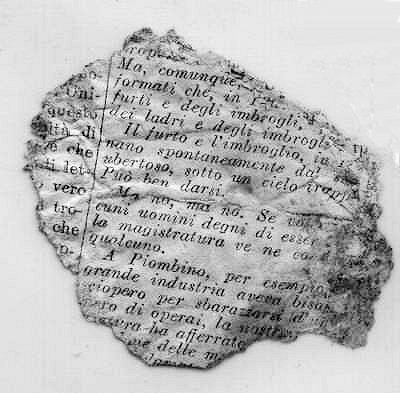 o-
Uni-
questo
ità di
e che
di let-
vero
tro-
che
o-
rope
Ma, comunque,
formati che, in
furti e degli imbrogli,
dei ladri e degli imbrogl
Il furto e l'imbroglio, in
nano spontaneamente dal
ubertoso, sotto un cielo
Può ben darsi.
Ma no, ma no. Se vo
cuni uomini degni di esser
la magistratura ve ne
qualcuno.
A Piombino, per esempio,
grande industria aveva biso
ciopero per sbarazzarsi d'
ero di operai, la nostra
ha afferrato
ve delle m